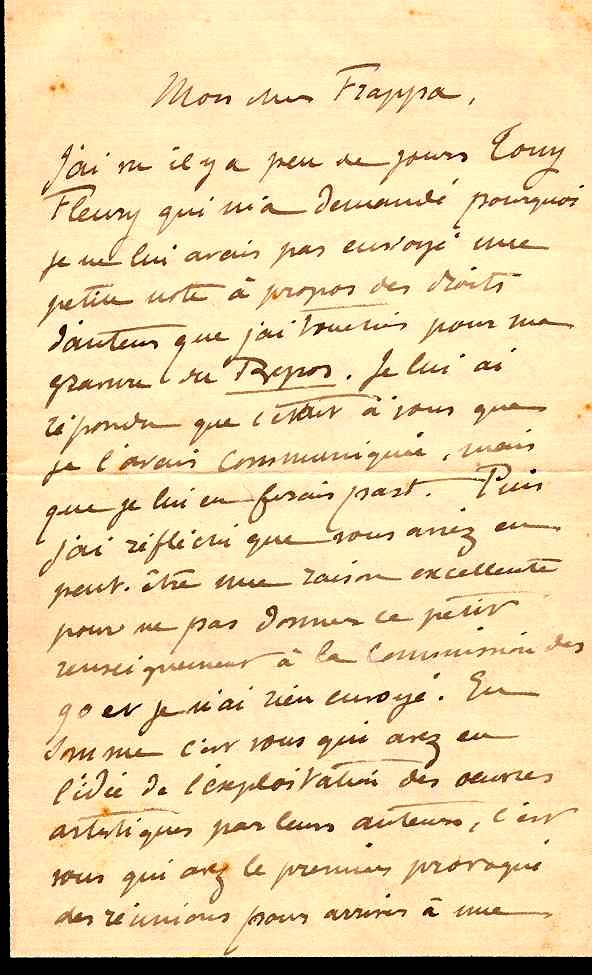 Mon cher Frappa,
J'ai vu il y a peu de jours Tony
Fleury qui m'a demandé pourquoi
je ne lui avais pas envoyé une
petite note à propos des droits
d'auteur que j'ai touchés pour ma
gravure du Repos. Je lui ai
répondu que c'était à vous que
je l'avais communiquée, mais
que je lui en ferais part. Puis
j'ai réfléchi que vous aviez eu
peut-être une raison excellente
pour ne pas donner ce petit
renseignement à la Commission des
90 et je n'ai rien envoyé. En
somme c'est vous qui avez eu
l'idée de l'exploitation des œuvres
artistiques par leurs auteurs, c'est
vous qui avez le premier provoqué
des réunions pour arriver à une